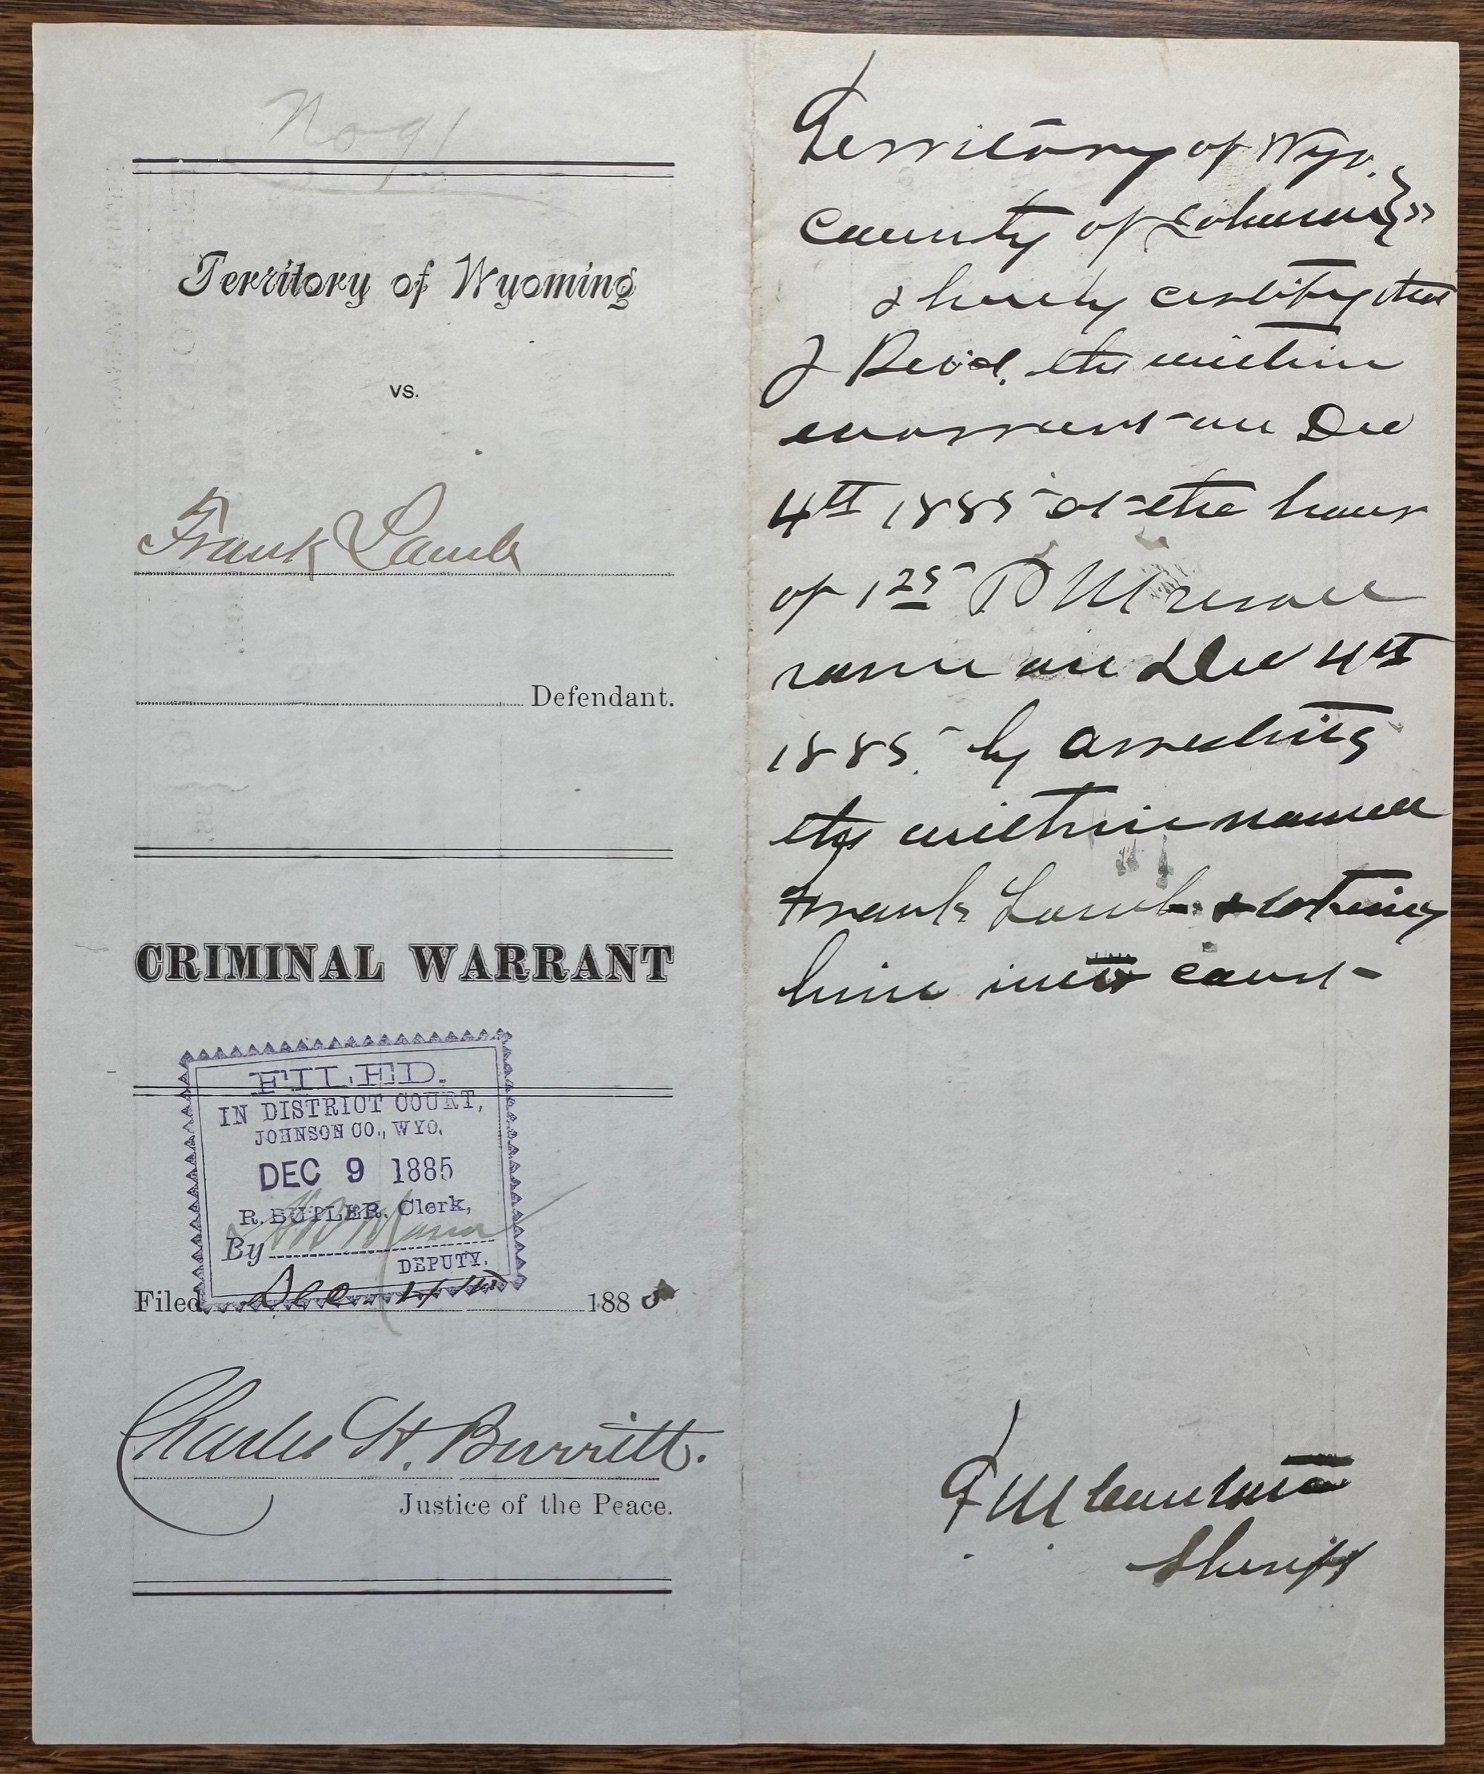 No 91
Territory of Wyoming
vs.
Frank Lamb
Defendant.
CRIMINAL WARRANT
FILED.
IN DISTRICT COURT,
JOHNSON CO., WYO.
DEC 9 1885
R. BUTLER. Clerk,
By
DEPUTY.
Filed Dec 4th 1885
Charles H. Burritt.
Justice of the Peace.
Territory of Wyo.
County of Johnson } ss
I hereby certify that
I Recd. the within
warrant on Dec
4th 1885 at the hour
of 1 25 P M
same on Dec 4th
1885. by arresting
the within named
Frank Lamb &
him into court
F M Canton
Sheriff